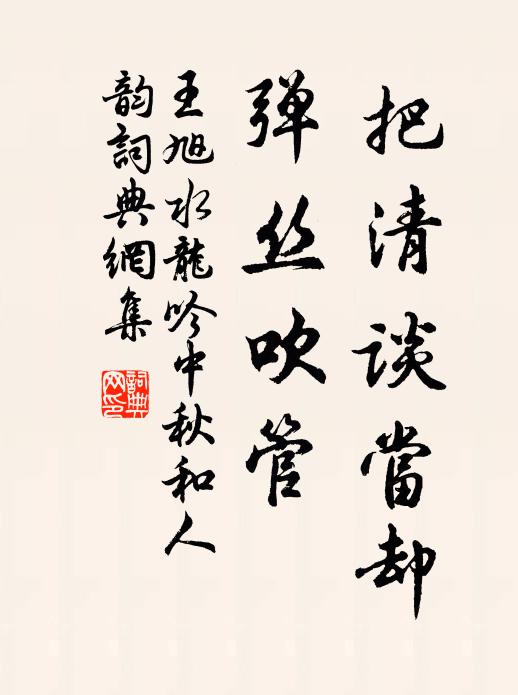 把清談當却
弹丝吹管
王旭水龍吟中秋和人
韵詞典網集
詞典
网印